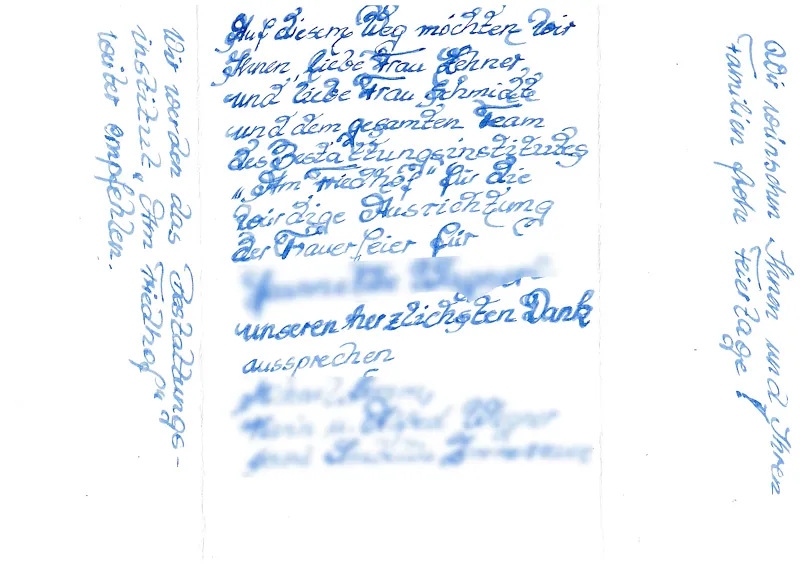 Auf diesem Weg möchten wir
Ihnen, liebe Frau Lehner
und liebe Frau Schmidt
und dem gesamten Team
des Bestattungsinstitutes
"Am Friedhof" für die
würdige Ausrichtung
der Trauerfeier für
unseren herzlichsten Dank
aussprechen
Wir werden das Bestattungs-
institut "Am Friedhof"
weiter empfehlen.
Wir wünschen Ihnen und Ihren
Familien frohe Feiertage!